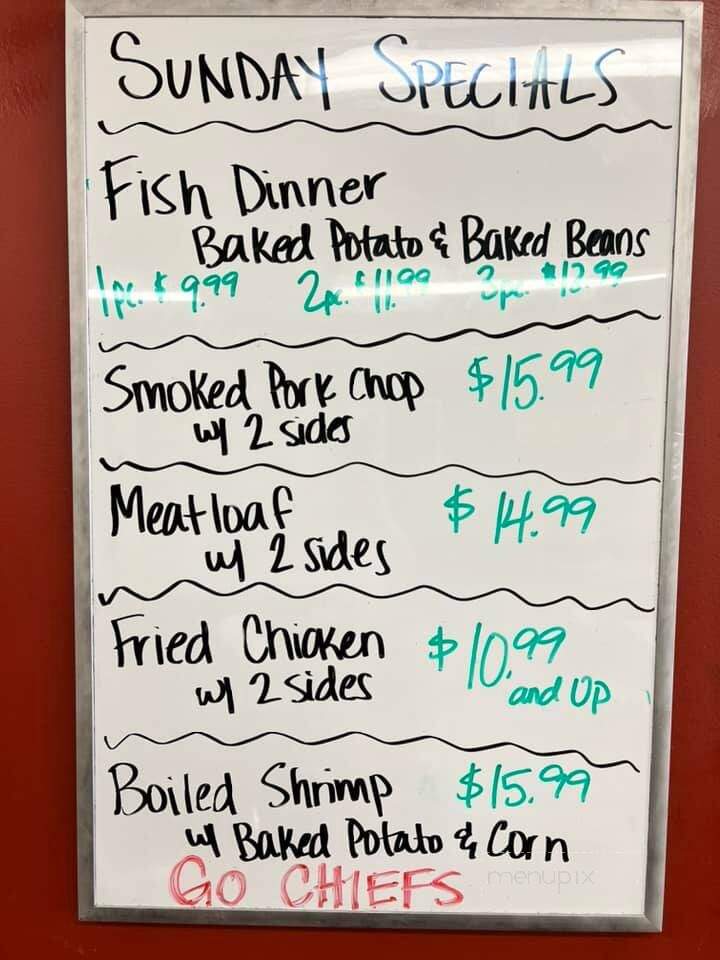 SUNDAY SPECIALS
Fish Dinner
Baked Potato & Baked Beans
1pc. $9.99 2pc. $11.99 3pc. $13.99
Smoked Pork Chop $15.99
w/ 2 sides
Meatloaf $14.99
w/ 2 sides
Fried Chicken $10.99
w/ 2 sides and Up
Boiled Shrimp $15.99
w/ Baked Potato & Corn
GO CHIEFS
menupix